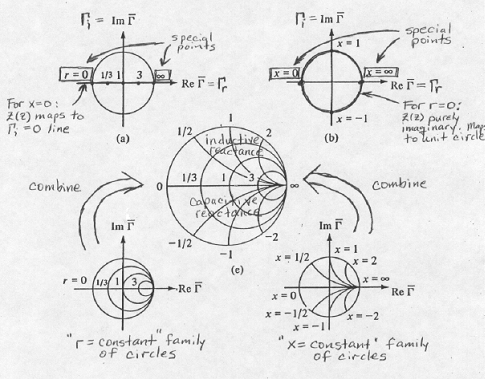 Γi = Im Γ̅
special points
r = 0
1/3 1 3
∞
Re Γ̅ = Γr
For x=0:
z(z) maps to
Γi = 0 line
(a)
Γi = Im Γ̅
special points
x = 1
x = 0
x = ∞
Re Γ̅ = Γr
x = -1
For r=0:
z(z) purely
imaginary. Maps
to unit circle
(b)
combine
1
1/2
2
inductive
reactance
0
1/3 1 3
∞
capacitive
reactance
-1/2
-2
-1
(c)
combine
Im Γ̅
r = 0 1/3 1 3
Re Γ̅
"r = constant" family
of circles
Im Γ̅
x = 1
x = 1/2
x = 2
x = ∞
Re Γ̅
x = 0
x = -1/2
x = -1
x = -2
"x = constant" family
of circles